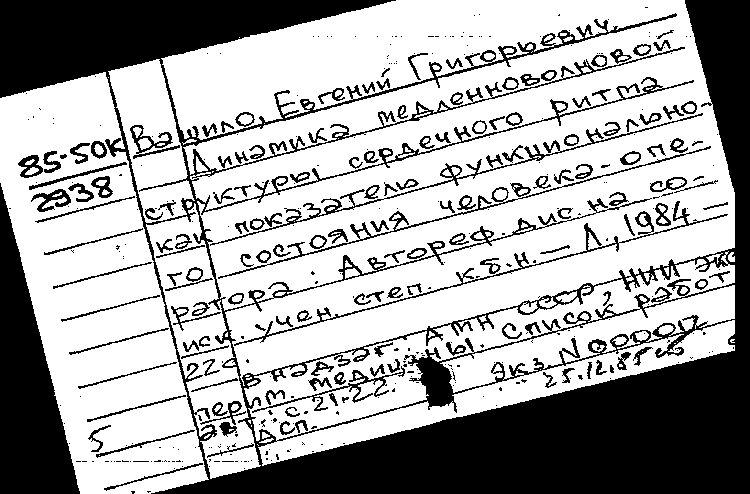 85-50к
2938
Вашило, Евгений Григорьевич.
Динамика медленноволновой
структуры сердечного ритма
как показатель функционально-
го состояния человека-опе-
ратора: Автореф. дис. на со-
иск. учен. степ. к.б.н. — Л., 1984 —
22с.
В надзаг.: АМН СССР, НИИ экс
перим. медицины. Список работ
авт.: с. 21-22. Экз. N 00007
ДСП. 25.12.85
5